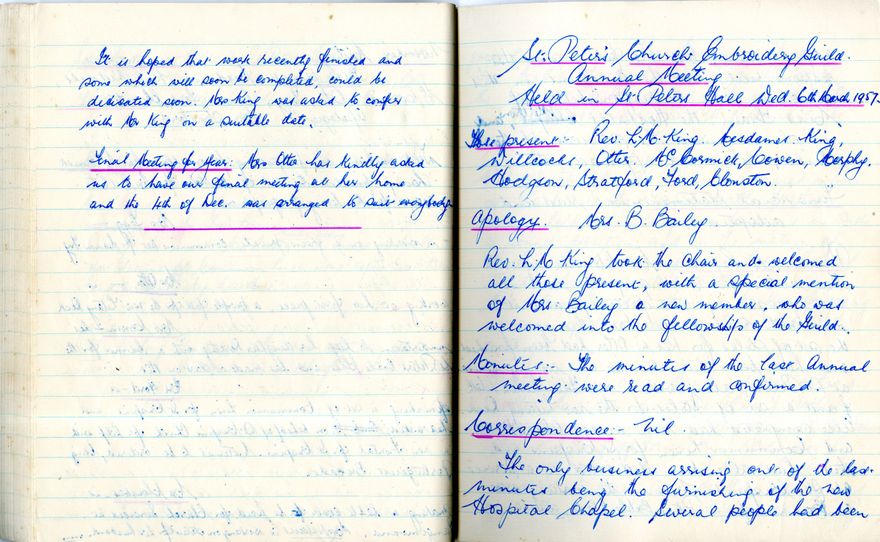 It is hoped that work recently finished and
some which will soon be completed, could be
dedicated soon. Mrs King was asked to confer
with Mr King on a suitable date.
Final Meeting for Year:- Mrs Otte has kindly asked
us to have our final meeting at her home
and the 4th of Dec. was arranged to suit everybody.
St. Peter's Church Embroidery Guild.
Annual Meeting
Held in St Peters Hall Wed. 6th March 1957.
Those present:- Rev. L. M. King. Mesdames King,
Willcocks, Otte. McCormick, Cowen, Murphy.
Hodgson, Stratford, Ford, Clouston.
Apology. Mrs. B. Bailey
Rev. L. M King took the Chair and welcomed
all those present, with a special mention
of Mrs. Bailey a new member, who was
welcomed into the fellowship of the Guild.
Minutes:- The minutes of the last Annual
meeting were read and confirmed.
Correspondence:- Nil.
The only business arrising out of the last
minutes being the furnishing of the new
Hospital Chapel. Several people had been